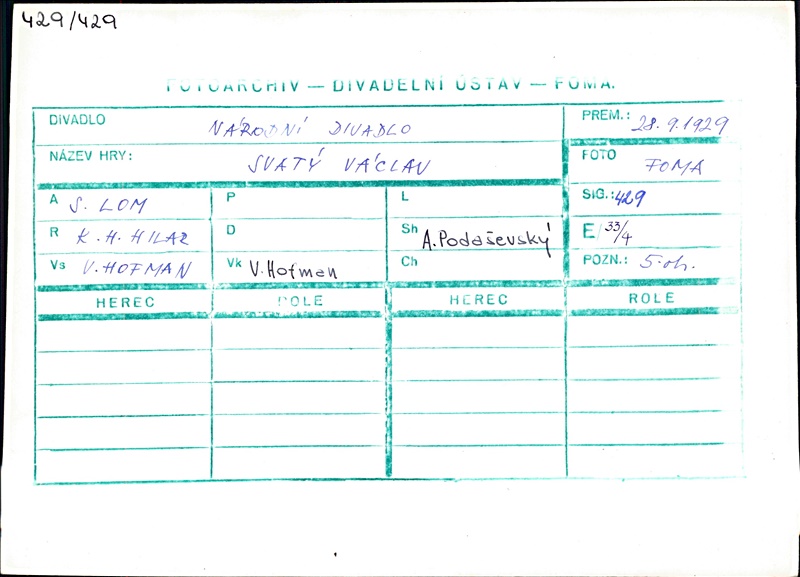 429/429
FOTOARCHIV — DIVADELNÍ ÚSTAV — FOMA.
DIVADLO NÁRODNÍ DIVADLO PREM.: 28.9.1929
NÁZEV HRY: SVATÝ VÁCLAV FOTO FOMA
A S. LOM P L SIG.: 429
R K. H. HILAR D Sh A. Podaševský E 33/4
Vs V. HOFMAN Vk V. Hofman Ch POZN.: 5 .
HEREC ROLE HEREC ROLE